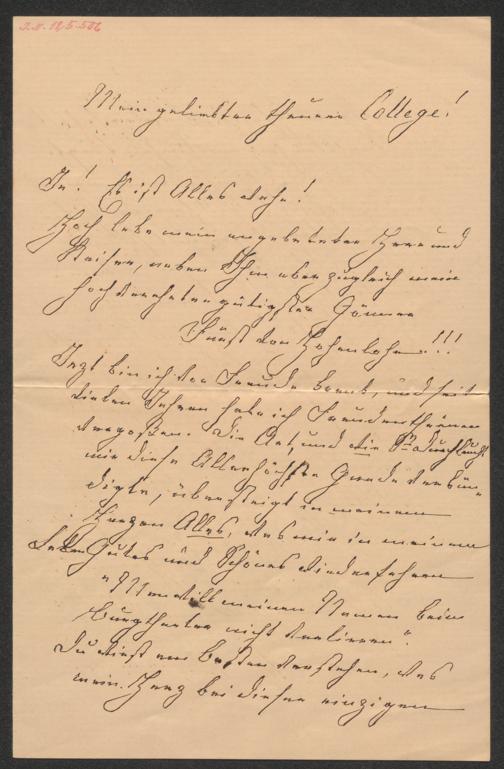 J.N. 125.506
Mein geliebter theurer College!
Ja! Es ist Alles wahr!
Hoch lebe mein angebeteter Herr und
Kaiser, neben Ihm aber zugleich mein
hochverehrter gütigster Gönner
Fürst von Hohenlohe!!!
Jezt bin ich vor Freude krank, und seit
vielen Jahren habe ich Freudenthränen
vergoßen. Die Art, und wie Sr Durchlaucht
mir diese Allerhöchste Gnade verkün-
digte, übersteigt in meinem
Herzen Alles, was mir in meinem
Leben Gutes und Schönes wiederfahren
"Man will meinen Namen beim
Burgtheater nicht verlieren".
Du wirst am Besten verstehen, was
mein Herz bei dieser einzigen